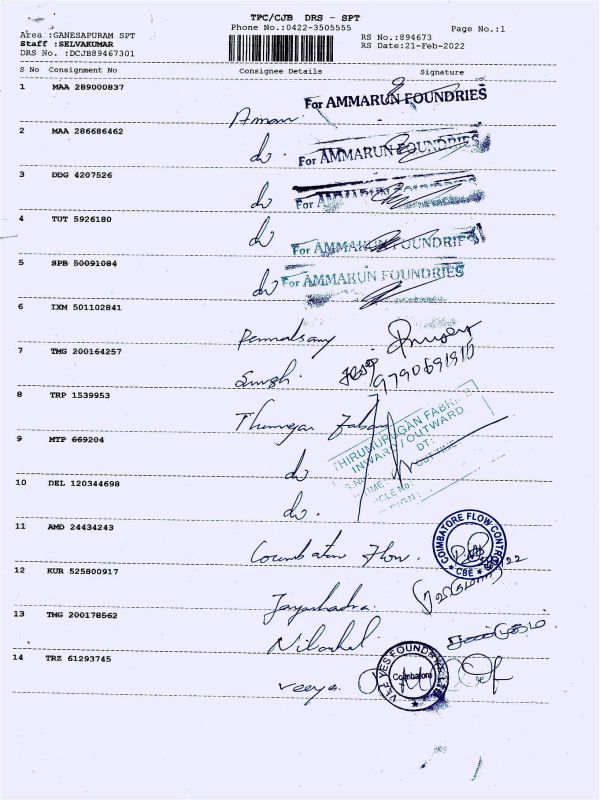 TPC/CJB DRS - SPT
Phone No.:0422-3505555
Page No.:1
Area :GANESAPURAM SPT
Staff :SELVAKUMAR
DRS No. :DCJB89467301
RS No.:894673
RS Date:21-Feb-2022
S No Consignment No Consignee Details Signature
1 MAA 289000837
For AMMARUN FOUNDRIES
Aman
2 MAA 286686462
do. For AMMARUN FOUNDRIES
3 DDG 4207526
do For
4 TUT 5926180
do For AMMARUN FOUNDRIES
5 SPB 50091084
do For AMMARUN FOUNDRIES
6 IXM 501102841
7 TMG 200164257
9790691910
8 TRP 1539953
THIRUMURUGAN FABRI
INWARD / OUTWARD
9 MTP 669204
do
10 DEL 120344698
do.
11 AMD 24434243
Coimbatore Flow.
COIMBATORE FLOW CONTROL
CBE
12 KUR 525800917
13 TMG 200178562
14 TRZ 61293745
Veeya.
VEE YES FOUNDRI
Coimbatore